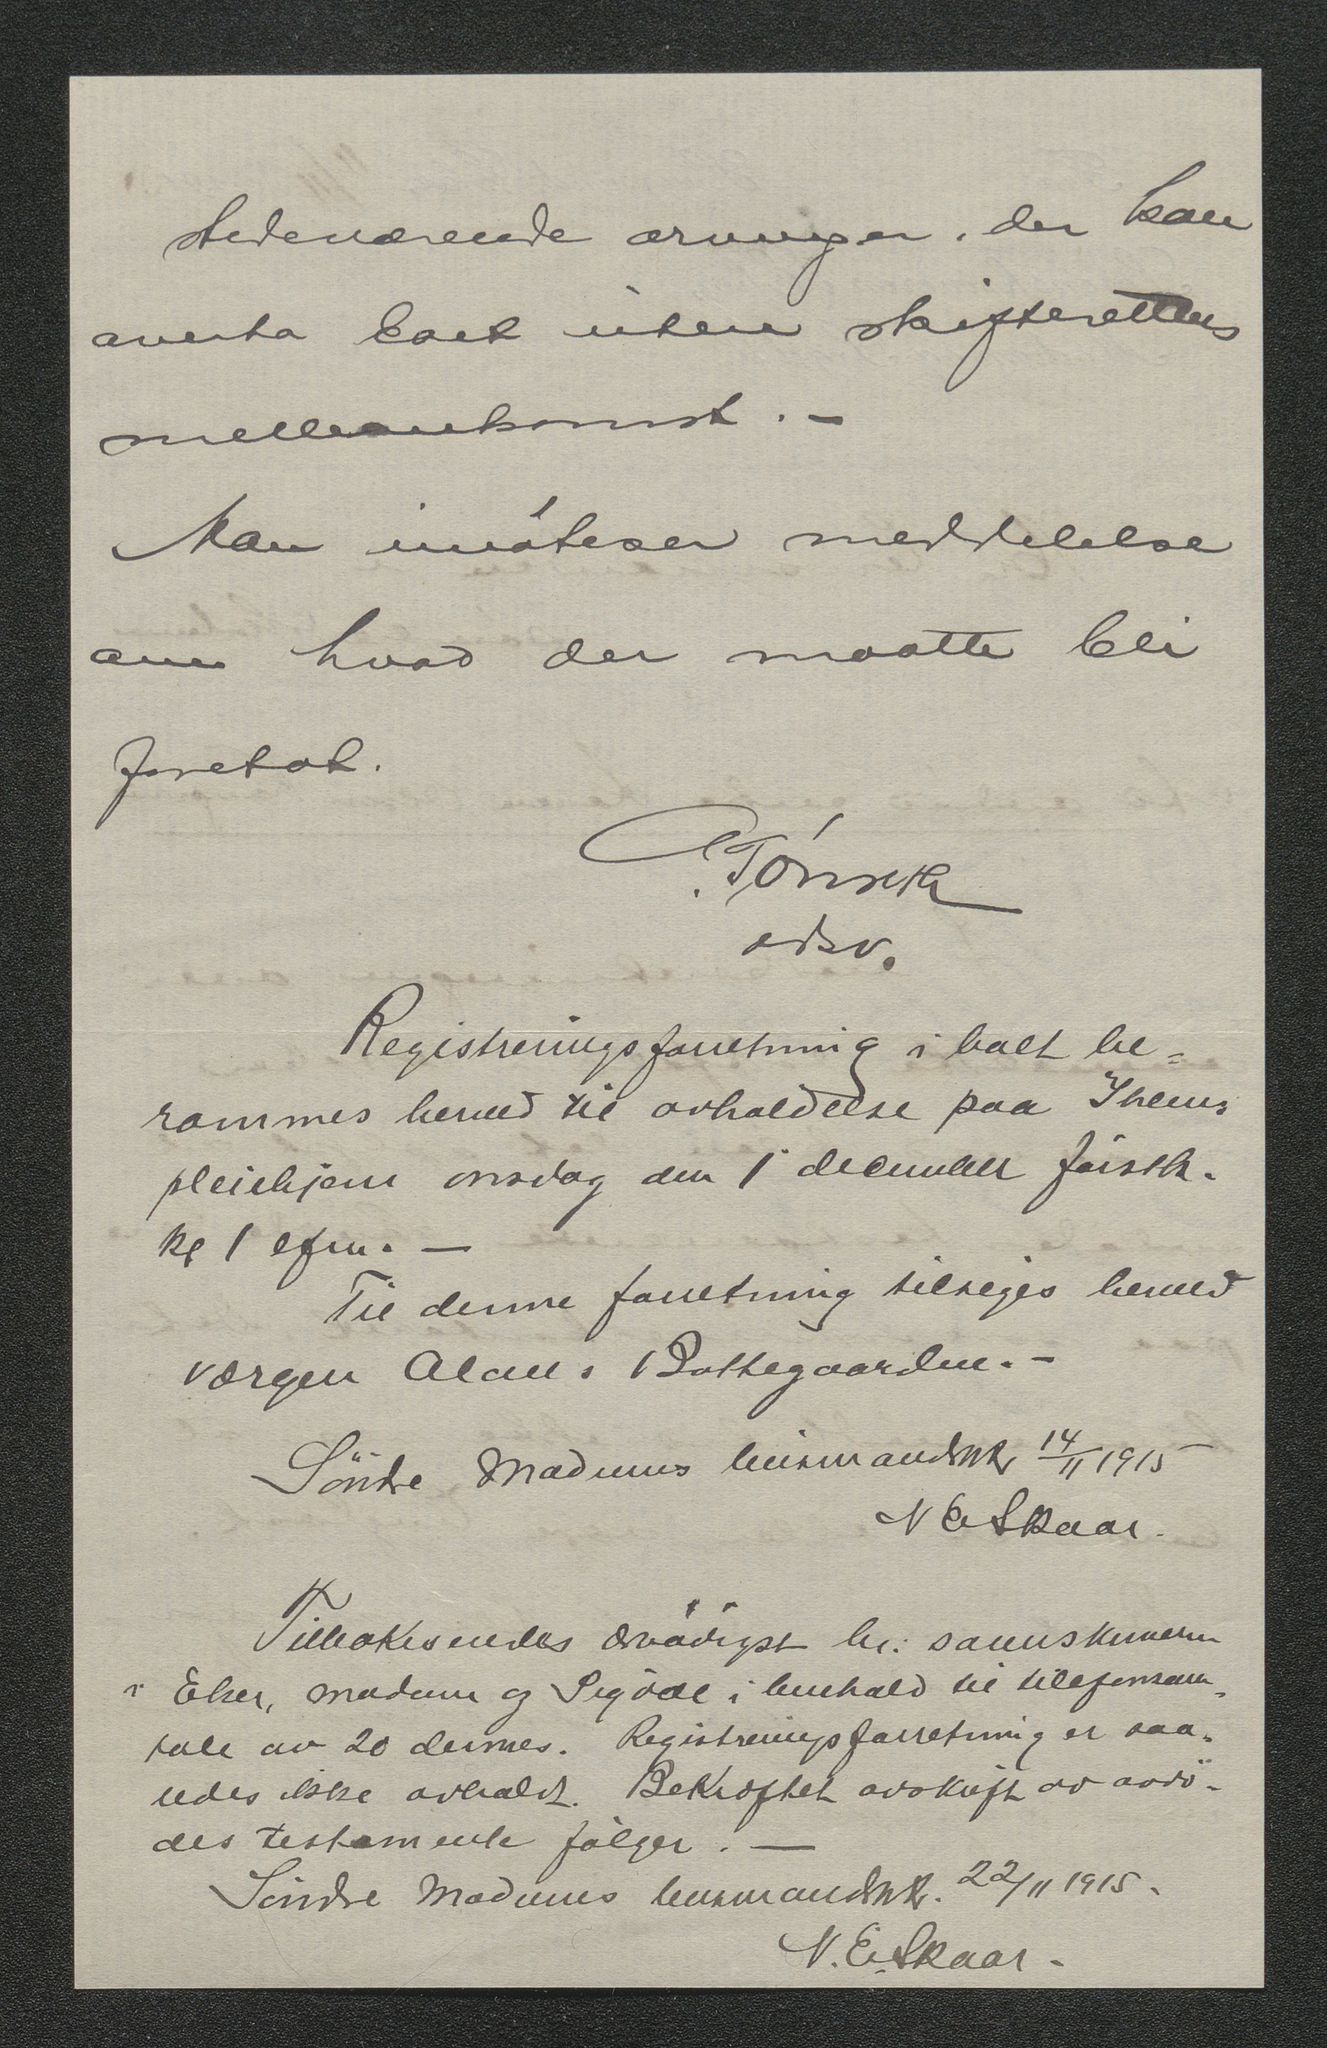 stedeværende arvinger, der kan
overta boet uten skifterettens
mellemkomst. –
Man imøteser meddelelse
om hvad der maatte bli
foretat.
Tønseth
adsv.
Registreringsforretning i boet be=
rammes herved til avholdelse paa Ihlens
pleiehjem onsdag den 1 december førstk.
kl 1 efm. –
Til denne forretning tilsiges herved
værgen Alan. Bottegaarden. –
Søndre Modums lensmandsk. 14/11 1915
N E Skaar.
Tilbakesendes ærbødigst hr: sorenskriveren
i Eker, Modum og Sigdal i henhold til telefonsam=
tale av 20 dennes. Registreringsforretning er saa-
ledes ikke avholdt. Bekræftet avskrift av avdø-
des testamente følger. –
Søndre Modums lensmandsk. 22/11 1915.
N. E. Skaar.